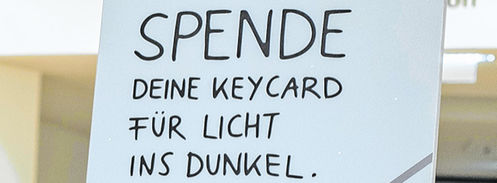 SPENDE
DEINE KEYCARD
FÜR LICHT
INS DUNKEL.